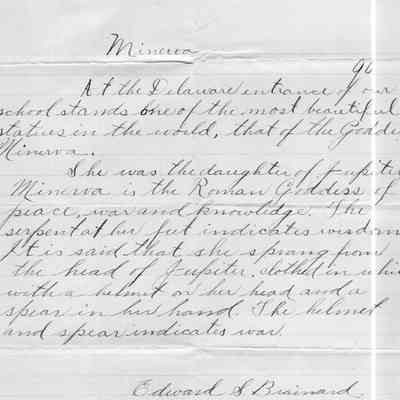 Minerva
90
At the Delaware entrance of our
school stands one of the most beautiful
statues in the world, that of the Godde
Minerva.
She was the daughter of Jupiter
Minerva is the Roman Goddess of
peace, war and knowledge. The
serpent at her feet indicates wisdom
It is said that she sprang from
the head of Jupiter, clothed in whi
with a helmet on her head and a
spear in her hand. The helmet
and spear indicates war.
Edward S. Brainard.